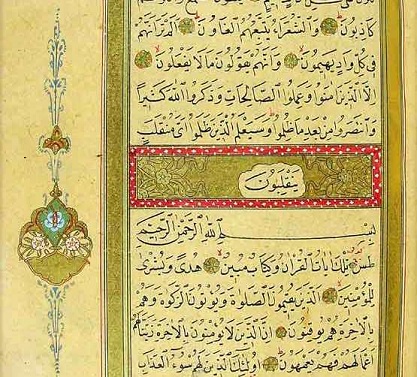 كَاذِبُونَ وَالشُّعَرَاءُ يَتَّبِعُهُمُ الْغَاوُونَ اَلَمْ تَرَ اَنَّهُمْ
فِى كُلِّ وَادٍ يَهِيمُونَ وَاَنَّهُمْ يَقُولُونَ مَا لَا يَفْعَلُونَ
اِلَّا الَّذِينَ اٰمَنُوا وَعَمِلُوا الصَّالِحَاتِ وَذَكَرُوا اللّٰهَ كَثِيرًا
وَانْتَصَرُوا مِنْ بَعْدِ مَا ظُلِمُوا وَسَيَعْلَمُ الَّذِينَ ظَلَمُوا اَىَّ مُنْقَلَبٍ
يَنْقَلِبُونَ
بِسْمِ اللّٰهِ الرَّحْمٰنِ الرَّحِيمِ
طٰسٓ تِلْكَ اٰيَاتُ الْقُرْاٰنِ وَكِتَابٍ مُبِينٍ هُدًى وَبُشْرٰى
لِلْمُؤْمِنِينَ اَلَّذِينَ يُقِيمُونَ الصَّلٰوةَ وَيُؤْتُونَ الزَّكٰوةَ وَهُمْ
بِالْاٰخِرَةِ هُمْ يُوقِنُونَ اِنَّ الَّذِينَ لَا يُؤْمِنُونَ بِالْاٰخِرَةِ زَيَّنَّا لَهُمْ
اَعْمَالَهُمْ فَهُمْ يَعْمَهُونَ اُولٰئِكَ الَّذِينَ لَهُمْ سُوءُ الْعَذَابِ